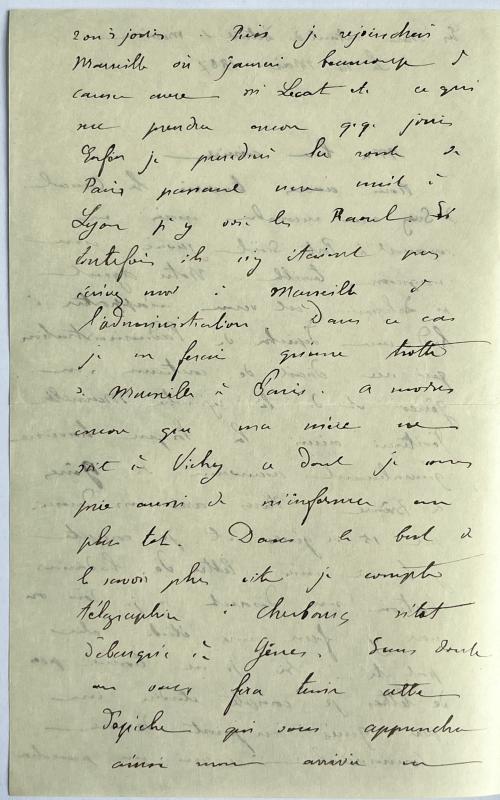 2 ou 3 jours. Puis je rejoindrais
Marseille où j'aurai beaucoup à
causer avec Mr Lecat etc ce qui
me prendra encore qq jours
Enfin je prendrai la route de
Paris passant une nuit à
Lyon pr y voir les Raoul. Si
toutefois ils n'y étaient pas
écrivez moi à Marseille à
l'administration Dans ce cas
je ne ferai qu'une trotte
de Marseille à Paris. A moins
encore que ma mère ne
soit à Vichy ce dont je vous
prie aussi de m'informer au
plus tot. Dans le but de
le savoir plus vite je compte
télégraphier à Cherbourg sitot
débarqué à Gênes. Sans doute
on vous fera tenir cette
dépêche qui vous apprendra
ainsi mon arrivée en